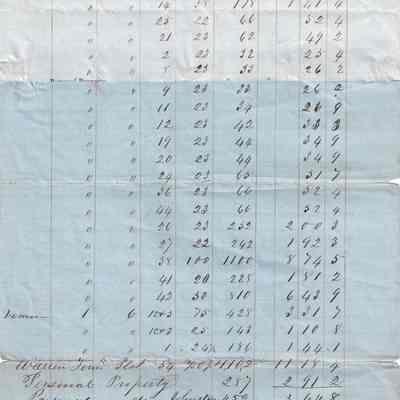 " " 14 38 178 1 41 4
" " 25 22 66 52 4
" " 21 23 62 49 2
" " 2 23 32 25 4
" " 8 23 33 26 2
" " 9 23 33 26 2
" " 11 23 34 26 9
" " 12 23 42 33 3
" " 19 23 44 34 9
" " 20 23 44 34 9
" " 24 23 65 51 7
" " 36 23 66 52 4
" " 44 23 66 52 4
" " 26 23 252 2 00 3
" " 27 22 242 1 92 3
" " 38 100 1100 8 74 5
" " 41 20 228 1 81 2
" " 43 50 810 6 43 9
1 6 75 428 3 31 7
" " 25 143 1 10 8
" " 1 186 1 44 1
Warren 54 11 18 9
Personal Property 287 2 91 2
452 3 44 8